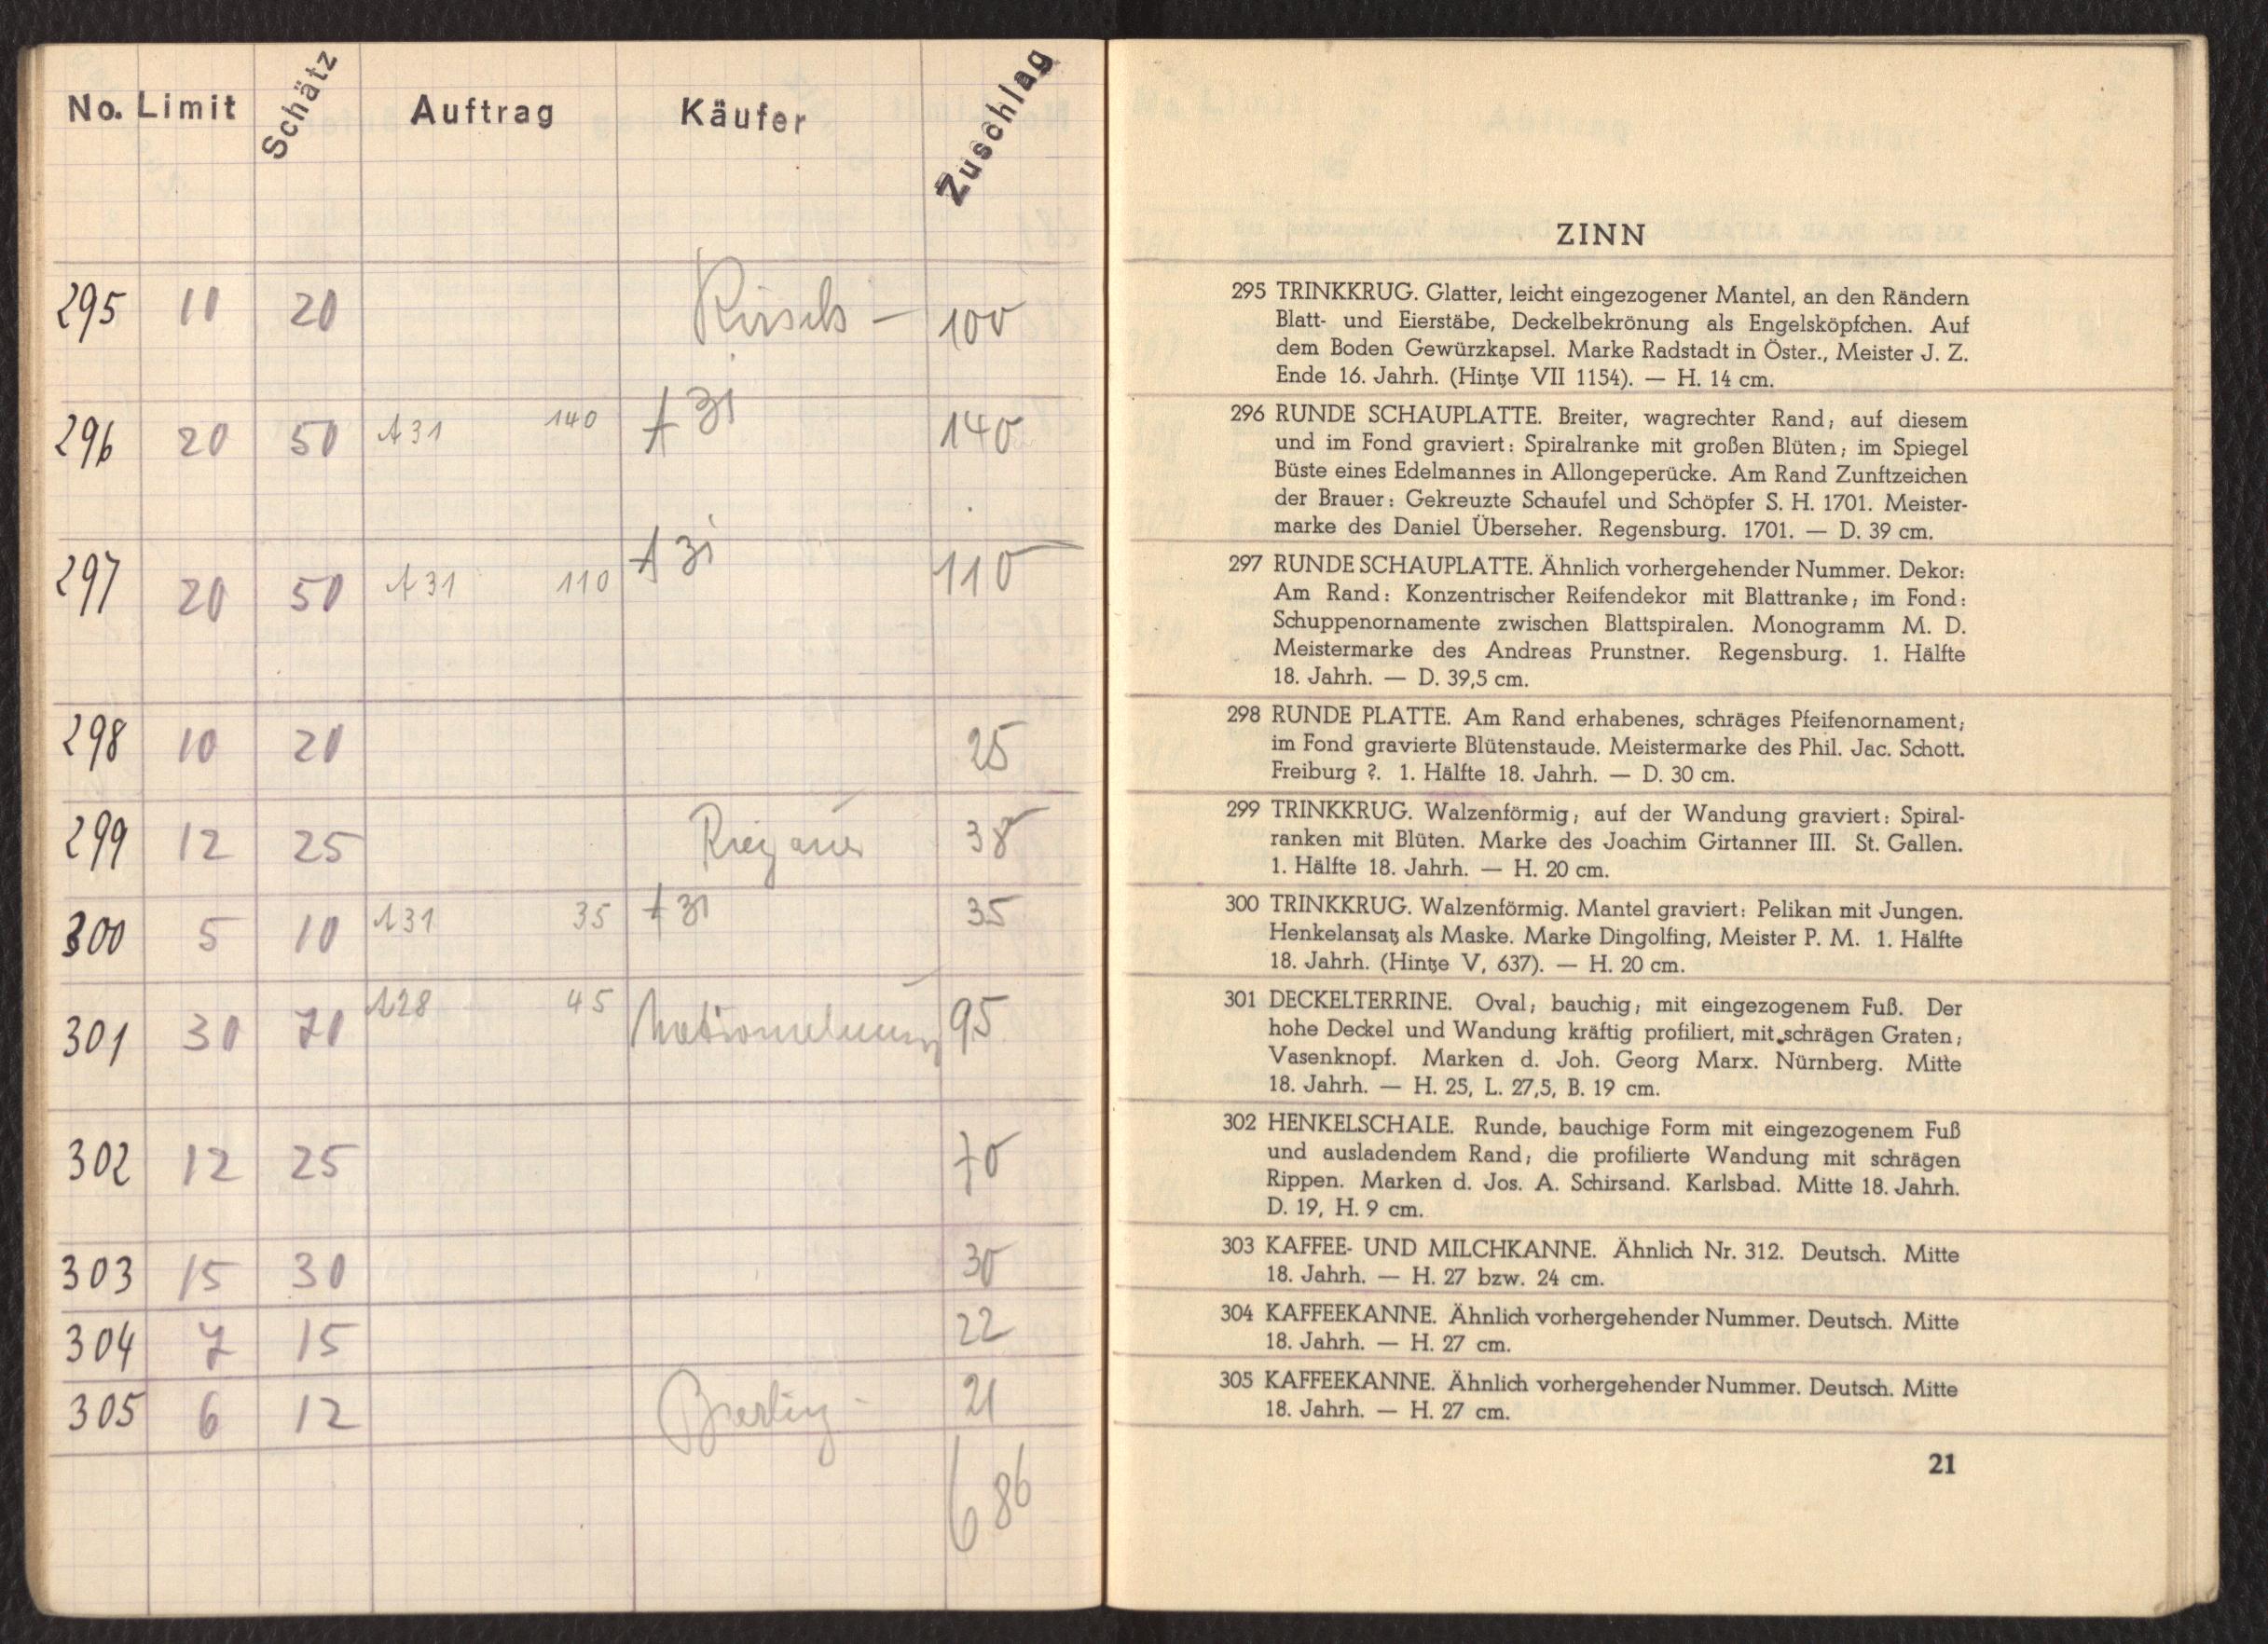 No. Limit Schätz Auftrag Käufer Zuschlag
295 10 20 100
296 20 50 A31 140 A 31 140
297 20 50 A31 110 A 31 110
298 10 20 25
299 12 25 38
300 5 10 A31 35 A 31 35
301 30 70 A28 45 95
302 12 25 70
303 15 30 30
304 7 15 22
305 6 12 21
686
ZINN
295 TRINKKRUG. Glatter, leicht eingezogener Mantel, an den Rändern
Blatt- und Eierstäbe, Deckelbekrönung als Engelsköpfchen. Auf
dem Boden Gewürzkapsel. Marke Radstadt in Öster., Meister J. Z.
Ende 16. Jahrh. (Hintze VII 1154). — H. 14 cm.
296 RUNDE SCHAUPLATTE. Breiter, wagrechter Rand; auf diesem
und im Fond graviert: Spiralranke mit großen Blüten; im Spiegel
Büste eines Edelmannes in Allongeperücke. Am Rand Zunftzeichen
der Brauer: Gekreuzte Schaufel und Schöpfer S. H. 1701. Meister-
marke des Daniel Überseher. Regensburg. 1701. — D. 39 cm.
297 RUNDE SCHAUPLATTE. Ähnlich vorhergehender Nummer. Dekor:
Am Rand: Konzentrischer Reifendekor mit Blattranke; im Fond:
Schuppenornamente zwischen Blattspiralen. Monogramm M. D.
Meistermarke des Andreas Prunstner. Regensburg. 1. Hälfte
18. Jahrh. — D. 39,5 cm.
298 RUNDE PLATTE. Am Rand erhabenes, schräges Pfeifenornament;
im Fond gravierte Blütenstaude. Meistermarke des Phil. Jac. Schott.
Freiburg ?. 1. Hälfte 18. Jahrh. — D. 30 cm.
299 TRINKKRUG. Walzenförmig; auf der Wandung graviert: Spiral-
ranken mit Blüten. Marke des Joachim Girtanner III. St. Gallen.
1. Hälfte 18. Jahrh. — H. 20 cm.
300 TRINKKRUG. Walzenförmig. Mantel graviert: Pelikan mit Jungen.
Henkelansatz als Maske. Marke Dingolfing, Meister P. M. 1. Hälfte
18. Jahrh. (Hintze V, 637). — H. 20 cm.
301 DECKELTERRINE. Oval; bauchig; mit eingezogenem Fuß. Der
hohe Deckel und Wandung kräftig profiliert, mit schrägen Graten;
Vasenknopf. Marken d. Joh. Georg Marx. Nürnberg. Mitte
18. Jahrh. — H. 25, L. 27,5, B. 19 cm.
302 HENKELSCHALE. Runde, bauchige Form mit eingezogenem Fuß
und ausladendem Rand; die profilierte Wandung mit schrägen
Rippen. Marken d. Jos. A. Schirsand. Karlsbad. Mitte 18. Jahrh.
D. 19, H. 9 cm.
303 KAFFEE- UND MILCHKANNE. Ähnlich Nr. 312. Deutsch. Mitte
18. Jahrh. — H. 27 bzw. 24 cm.
304 KAFFEEKANNE. Ähnlich vorhergehender Nummer. Deutsch. Mitte
18. Jahrh. — H. 27 cm.
305 KAFFEEKANNE. Ähnlich vorhergehender Nummer. Deutsch. Mitte
18. Jahrh. — H. 27 cm.
21